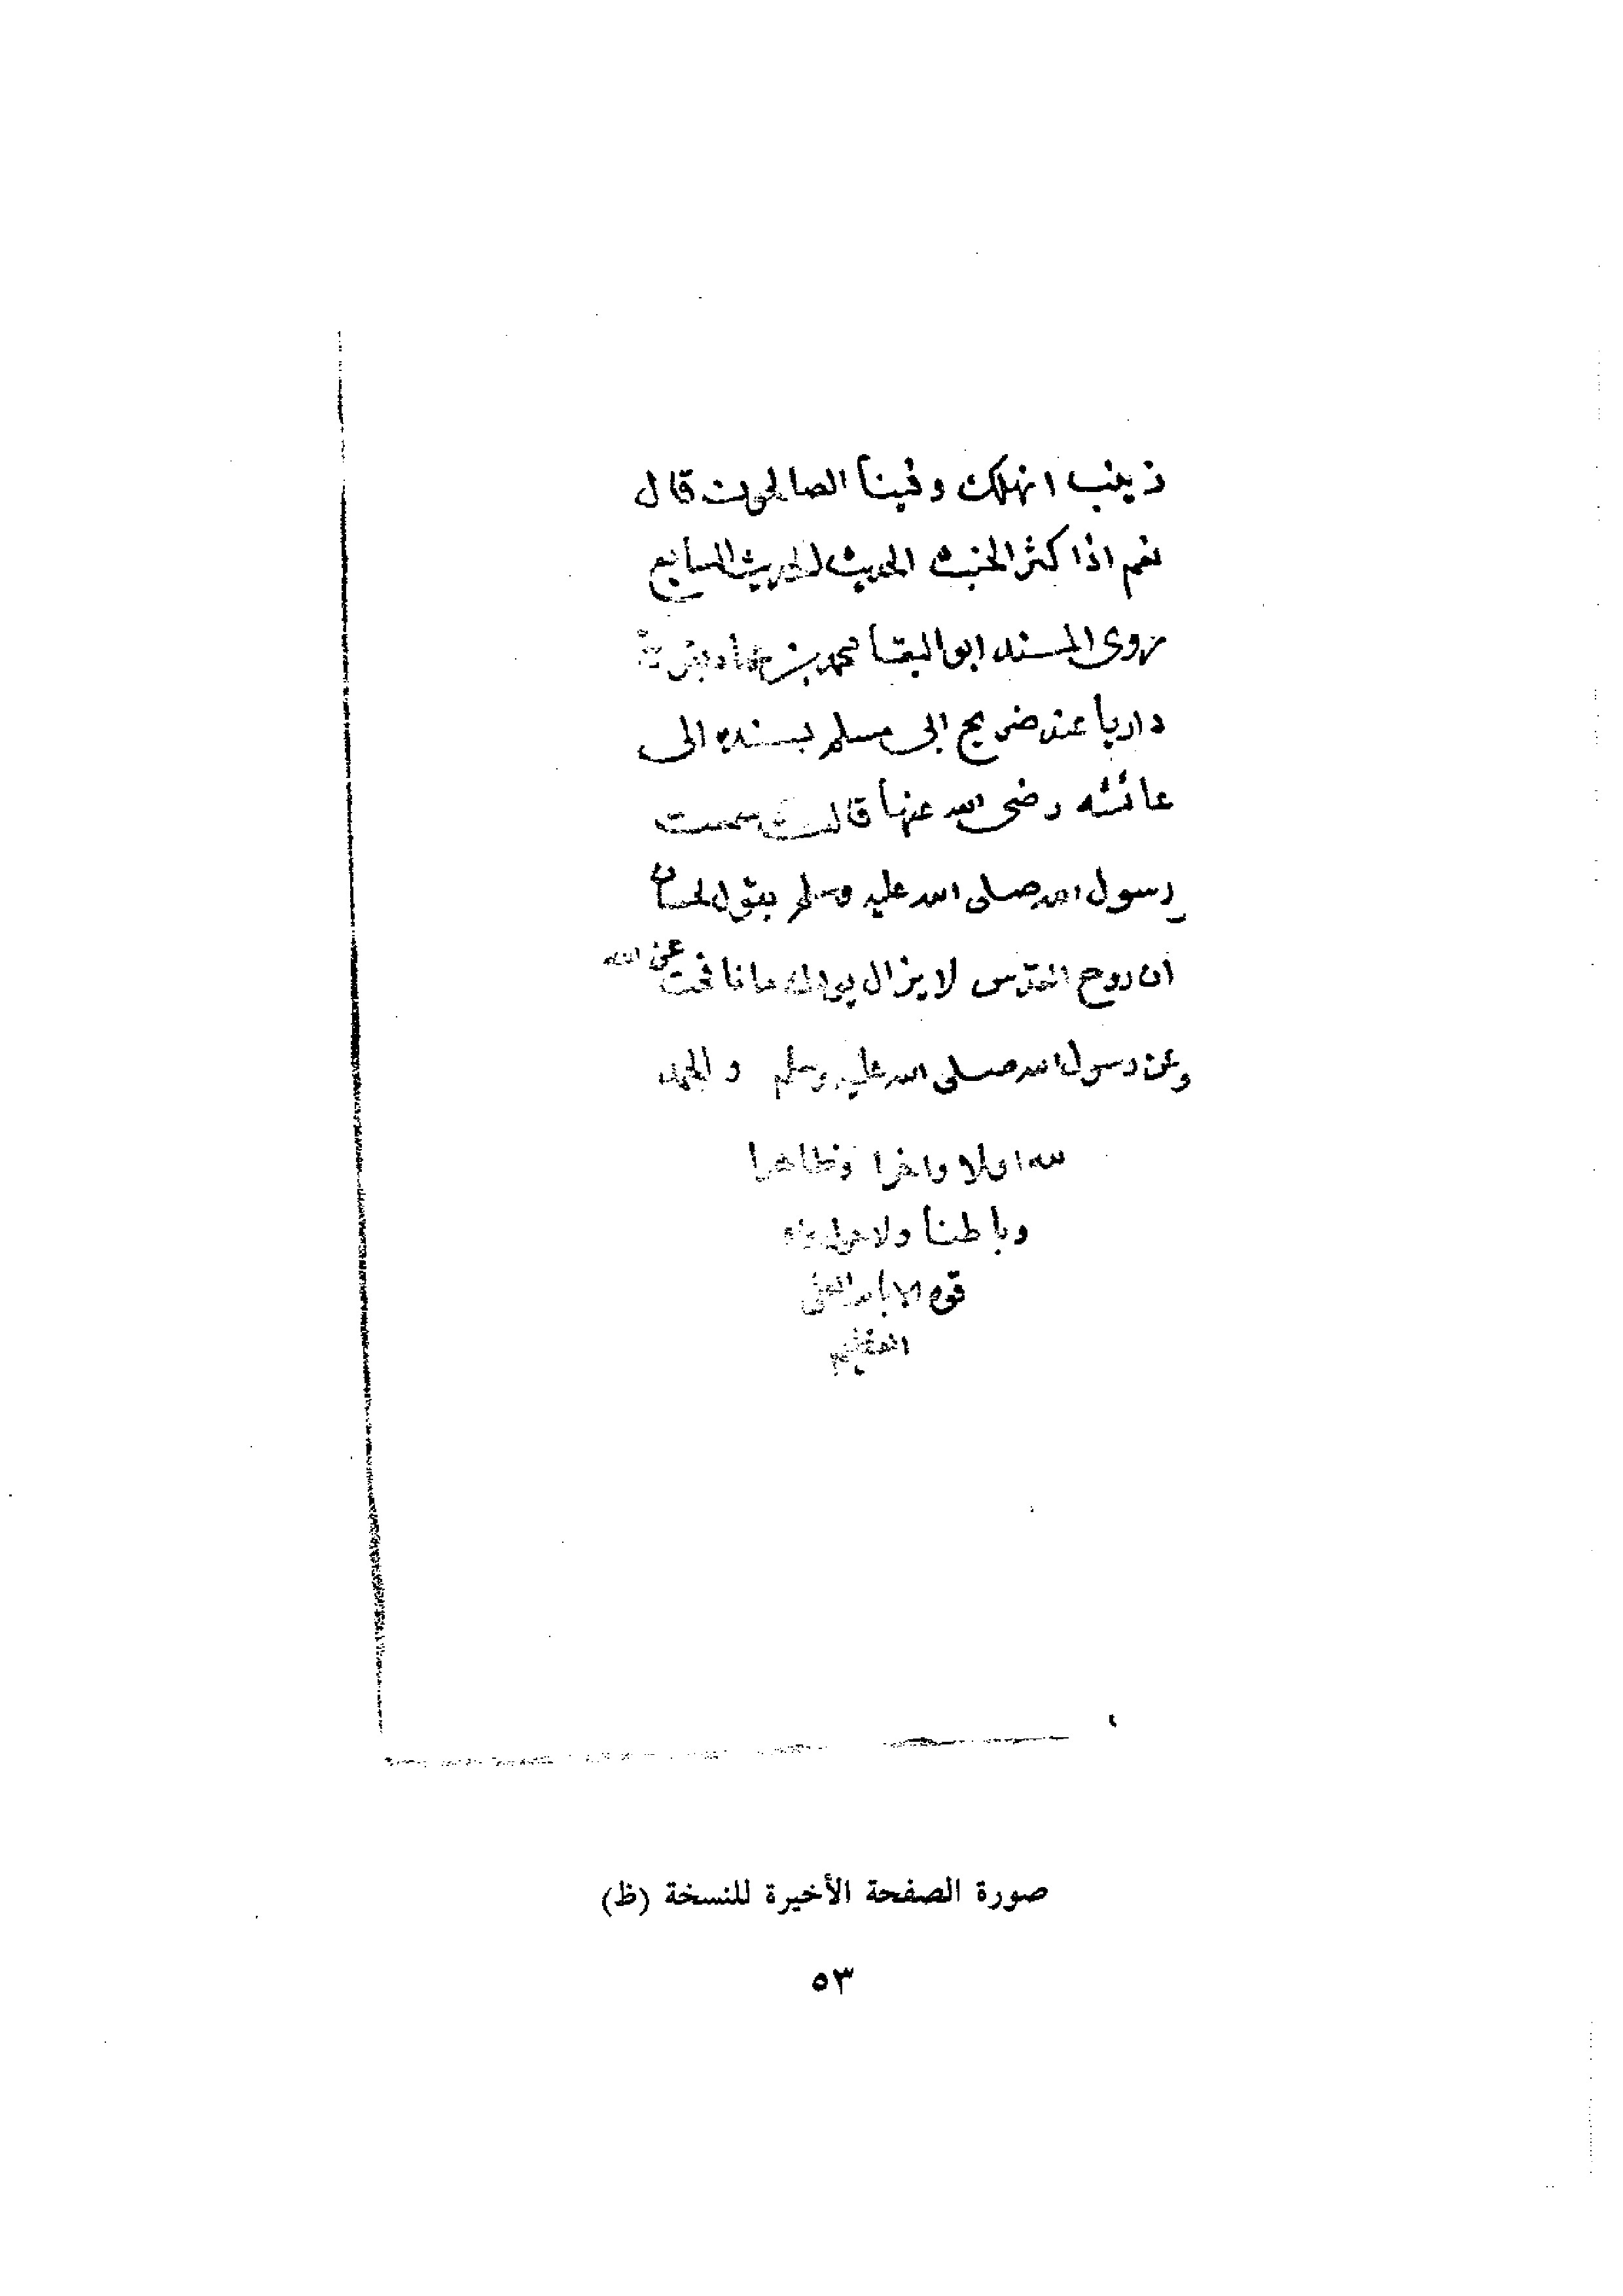 زينب انهلك وفينا الصالحون قال
نعم اذا كثر الخبث الحديث الحديث السابع
روى المسند ابو البقا محمد بن
داريا عند ضريح ابى مسلم بسنده الى
عائشه رضى الله عنها قالت سمعت
رسول الله صلى الله عليه وسلم يقول لحسان
ان روح القدس لا يزال يويدك ما نافحت عن الله
وعن رسول الله صلى الله عليه وسلم والحمد
لله اولا واخرا وظاهرا
وباطنا ولا حول ولا
قوه الا بالله العلى
العظيم
صورة الصفحة الأخيرة للنسخة (ظ)
٥٣